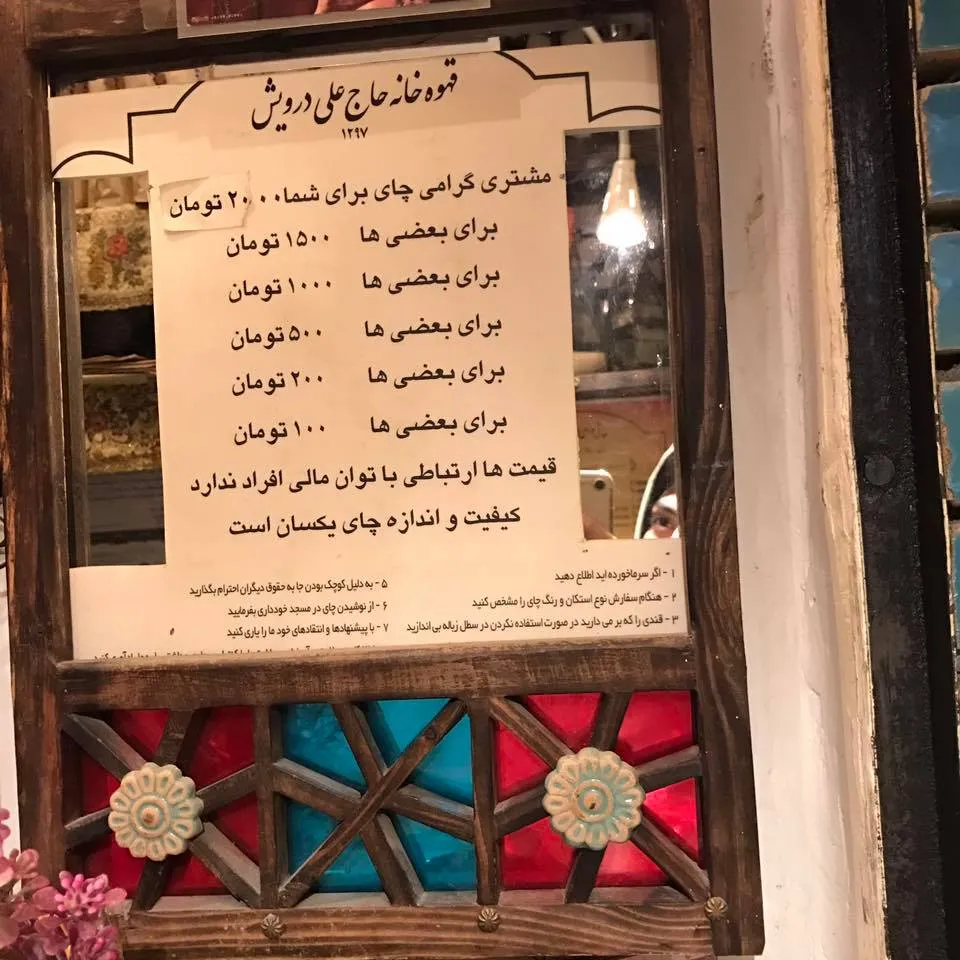 قهوه خانه حاج علی درویش
۱۲۹۷
مشتری گرامی چای برای شما ۲۰۰۰ تومان
برای بعضی ها ۱۵۰۰ تومان
برای بعضی ها ۱۰۰۰ تومان
برای بعضی ها ۵۰۰ تومان
برای بعضی ها ۲۰۰ تومان
برای بعضی ها ۱۰۰ تومان
قیمت ها ارتباطی با توان مالی افراد ندارد
کیفیت و اندازه چای یکسان است
۱ - اگر سرماخورده اید اطلاع دهید
۲ - هنگام سفارش نوع استکان و رنگ چای را مشخص کنید
۳ - قندی را که بر می دارید در صورت استفاده نکردن در سطل زباله بی اندازید
۵ - به دلیل کوچک بودن جا به حقوق دیگران احترام بگذارید
۶ - از نوشیدن چای در مسجد خودداری بفرمایید
۷ - با پیشنهادها و انتقادهای خود ما را یاری کنید